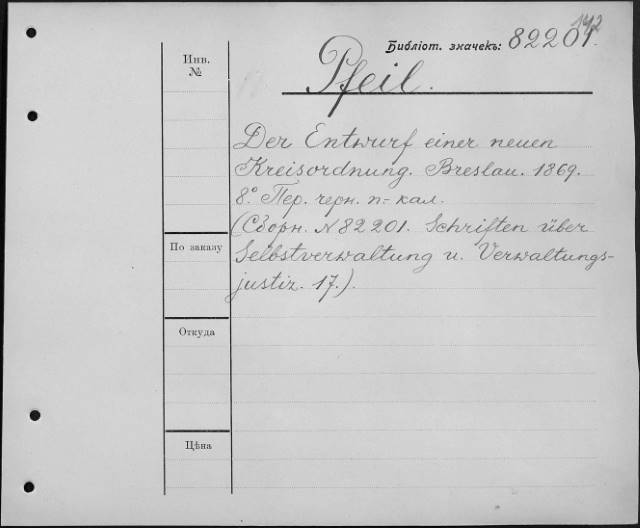 142
Библіот. значекъ: 82201.
Инв.
№
Pfeil.
Der Entwurf einer neuen
Kreisordnung. Breslau. 1869.
8.° Пер. черн. п.- кал.
(Сборн. N 82201. Schriften über
Selbstverwaltung u. Verwaltungs-
justiz. 17.).
По заказу
Откуда
Цѣна